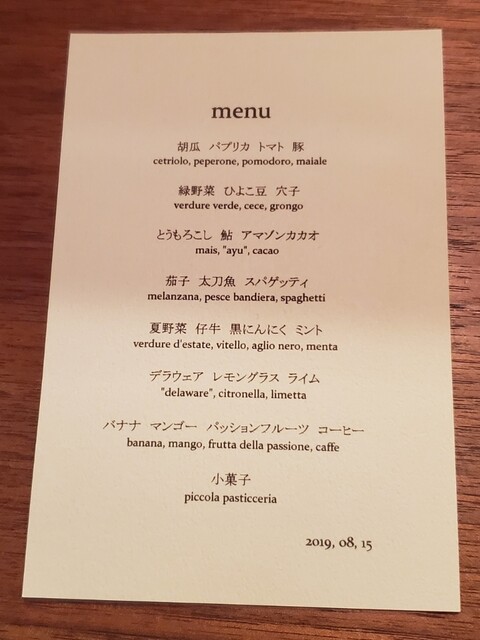 menu
胡瓜 パプリカ トマト 豚
cetriolo, peperone, pomodoro, maiale
緑野菜 ひよこ豆 穴子
verdure verde, cece, grongo
とうもろこし 鮎 アマゾンカカオ
mais, "ayu", cacao
茄子 太刀魚 スパゲッティ
melanzana, pesce bandiera, spaghetti
夏野菜 仔牛 黒にんにく ミント
verdure d'estate, vitello, aglio nero, menta
デラウェア レモングラス ライム
"delaware", citronella, limetta
バナナ マンゴー パッションフルーツ コーヒー
banana, mango, frutta della passione, caffe
小菓子
piccola pasticceria
2019, 08, 15